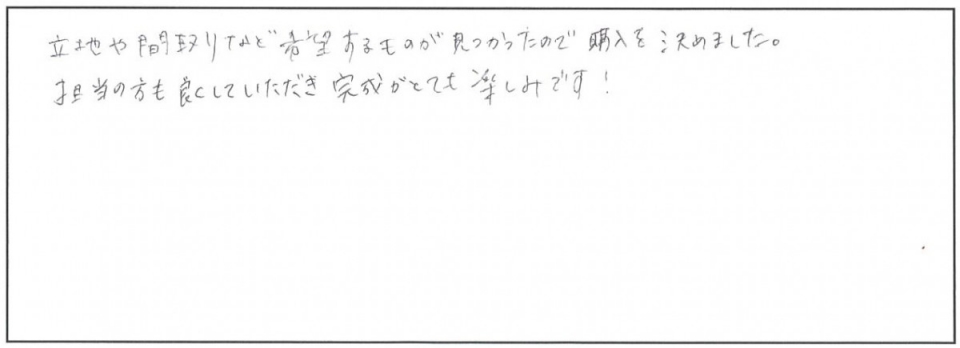 立地や間取りなど希望するものが見つかったので購入を決めました。
担当の方も良くしていただき完成がとても楽しみです!